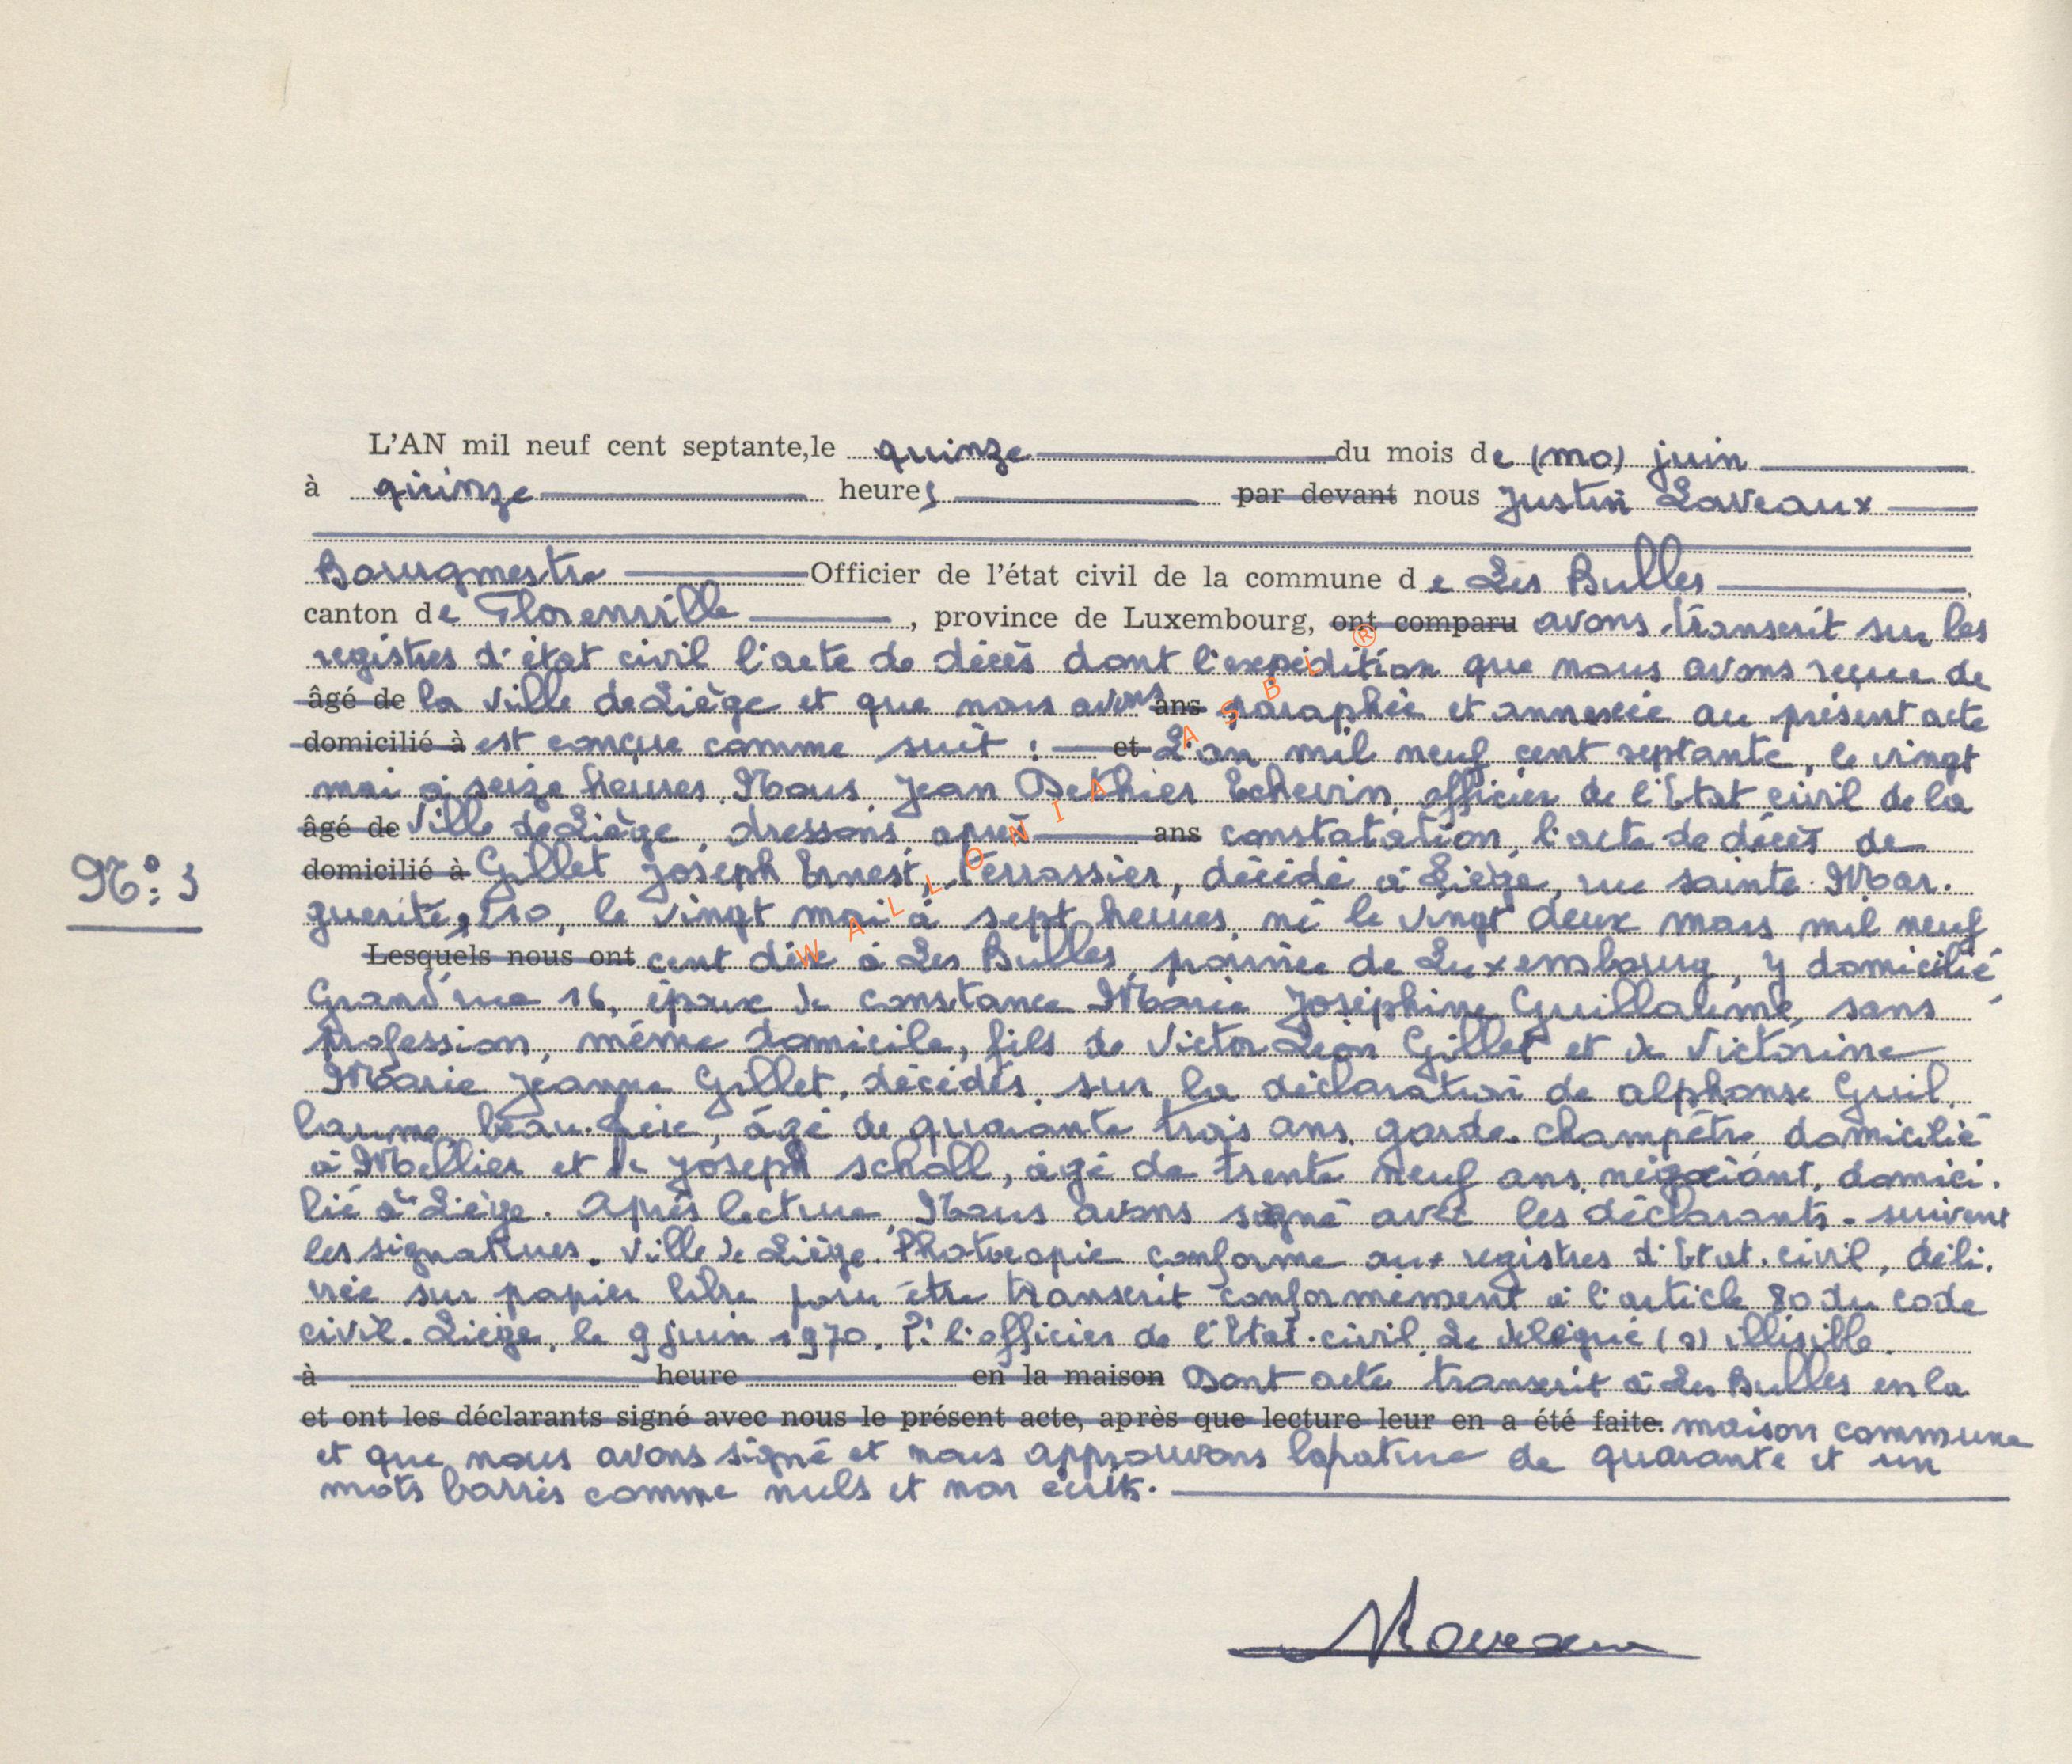 L'AN mil neuf cent septante, le quinze du mois de (mo) juin
à quinze heures par devant nous Justin Laveaux
Bourgmestre Officier de l'état civil de la commune de Les Bulles,
canton de Florenville, province de Luxembourg, ont comparu avons transcrit sur les
registres d'état civil l'acte de décès dont l'expédition que nous avons reçue de
âgé de la ville de Liège et que nous avons ans paraphée et annexée au présent acte
domicilié à est conçue comme suit : et L'an mil neuf cent septante, le vingt
mai à seize heures. Nous, Jean Dethier Echevin, officier de l'Etat civil de la
âgé de Ville de Liège, dressons, après ans constatation, l'acte de décès de
N°: 3
domicilié à Gillet Joseph Ernest, Terrassier, décédé à Liège, rue sainte Mar.
guerite, le vingt mai à sept heures, né le vingt deux mars mil neuf
Lesquels nous ont cent dix à Les Bulles, province de Luxembourg, y domicilié
Grand'rue 16, époux de Constance Marie Joséphine Guillaume, sans
profession, même domicile, fils de Victor Léon Gillet et de Victorine
Marie Jeanne Gillet, décédés. sur la déclaration de alphonse Guil.
laume, beau-frère, âgé de quarante trois ans, garde-champêtre domicilié
à Mellier et de Joseph Scholl, âgé de trente neuf ans, négociant, domici.
lié à Liège. Après lecture, Nous avons signé avec les déclarants. suivent
les signatures. Ville de Liège. Photocopie conforme aux registres d'Etat. civil, déli.
vrée sur papier libre pour être transcrit conformément à l'article 80 du code
civil. Liège, le 9 juin 1970. P. l'officier de l'Etat. civil, Le délégué (s) illisible.
à heure en la maison Dont acte transcrit à Les Bulles en la
et ont les déclarants signé avec nous le présent acte, après que lecture leur en a été faite. maison commune
et que nous avons signé et nous approuvons la rature de quarante et un
mots barrés comme nuls et non écrits.
Laveaux
WALLONIA ASBL ®